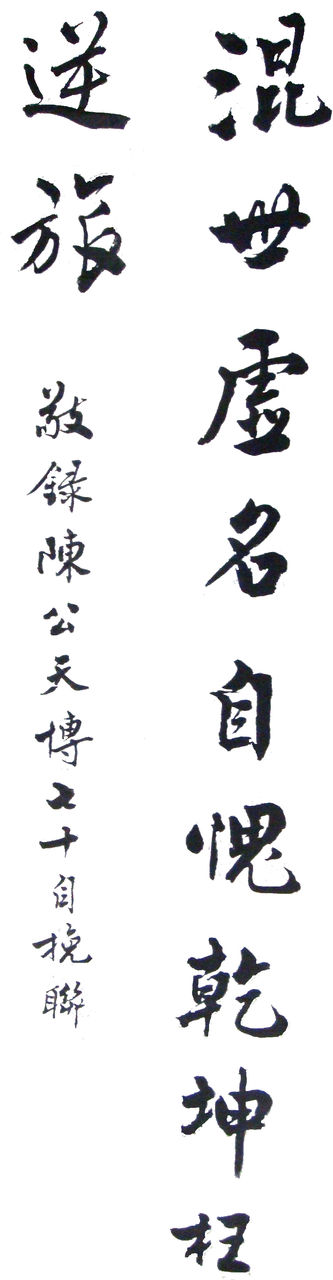 混世虛名自愧乾坤枉
逆旅
敬録陳公天博七十自挽聯